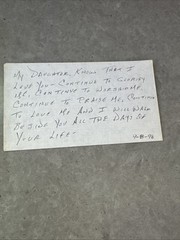 My Daughter, Know That I
Love You - Continue To Glorify
Me, Continue To Worship Me,
Continue To Praise Me, Continue
To Love Me And I Will Walk
Beside You All The Days Of
Your Life!